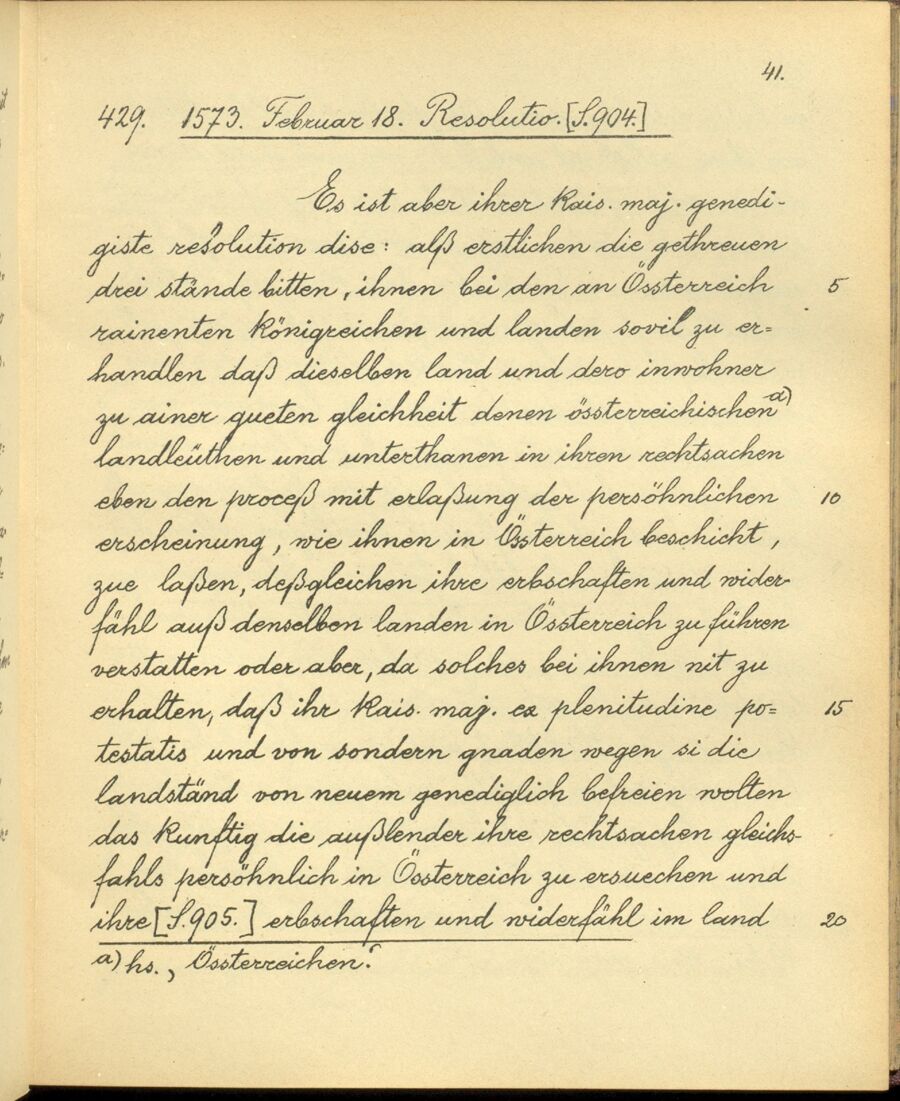 41.
429. 1573. Februar 18. Resolutio. [S.904.]
Es ist aber ihrer kais. maj. genedi-
giste resolution dise: alß erstlichen die gethreuen
drei stände bitten, ihnen bei den an Össterreich 5
rainenten königreichen und landen sovil zu er=
handlen daß dieselben land und dero inwohner
zu ainer gueten gleichheit denen össterreichischen a)
landleüthen und unterthanen in ihren rechtsachen
eben den proceß mit erlaßung der persöhnlichen 10
erscheinung, wie ihnen in Össterreich beschicht,
zue laßen, deßgleichen ihre erbschaften und wider-
fähl auß denselben landen in Össterreich zu führen
verstatten oder aber, da solches bei ihnen nit zu
erhalten, daß ihr kais. maj. ex plenitudine po= 15
testatis und von sondern gnaden wegen si die
landständ von neuem genediglich befreien wolten
das kunftig die außlender ihre rechtsachen gleichs-
fahls persöhnlich in Össterreich zu ersuechen und
ihre [S.905.] erbschaften und widerfähl im land 20
a) hs. „Össterreichen“.